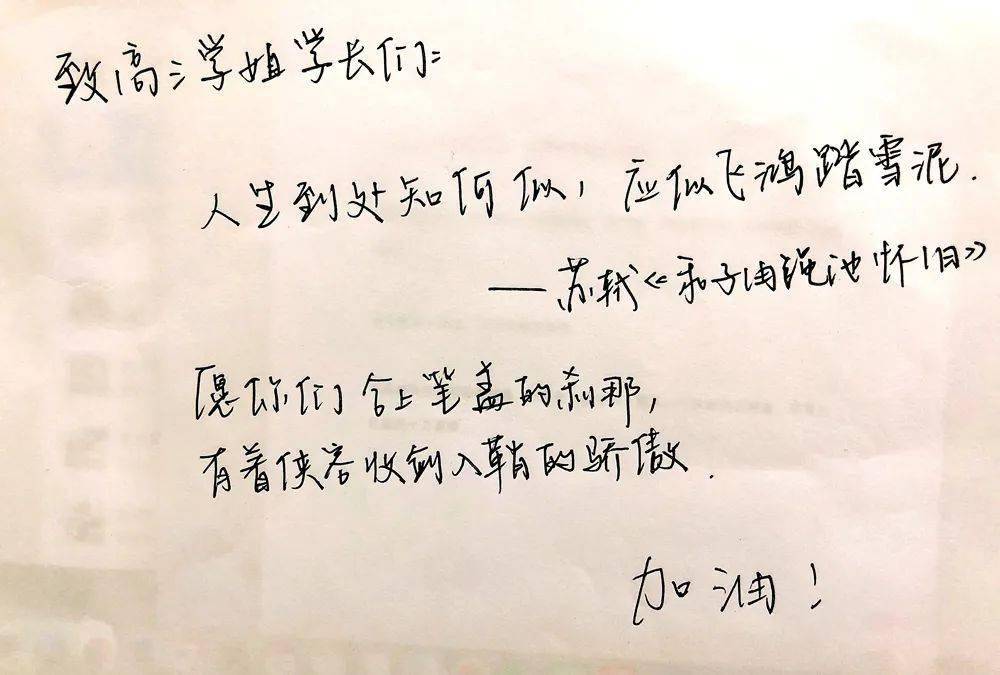 致高三学姐学长们:
人生到处知何似,应似飞鸿踏雪泥.
——苏轼《和子由渑池怀旧》
愿你们合上笔盖的刹那,
有着侠客收剑入鞘的骄傲.
加油!